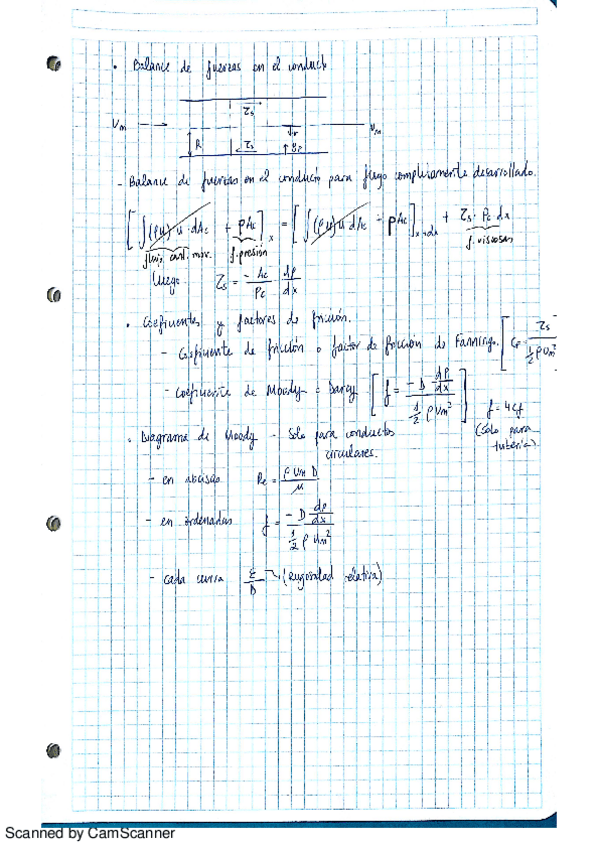 • Balance de fuerzas en el conducto
τs
Um R τs r Um
- Balance de fuerzas en el conducto para flujo completamente desarrollado.
[∫(ρu)u·dAc + pAc]x = [∫(ρu)u dAc + pAc]x+dx + τs·Pc dx
fluj. cant. mov. f. presión f. viscosas
Luego τs = -Ac/Pc dp/dx
• Coeficientes y factores de fricción.
- Coeficiente de fricción o factor de fricción de Fanning. [Cf = τs / ½ρUm²
- Coeficiente de Moody o Darcy [f = -D dp/dx / ½ρUm²] f = 4Cf
(solo para
tubería)
• Diagrama de Moody - Solo para conductos
circulares.
- en abcisas Re = ρUmD/μ
- en ordenadas f = -D dp/dx / ½ρUm²
- cada curva ε/D → (Rugosidad relativa)
Scanned by CamScanner